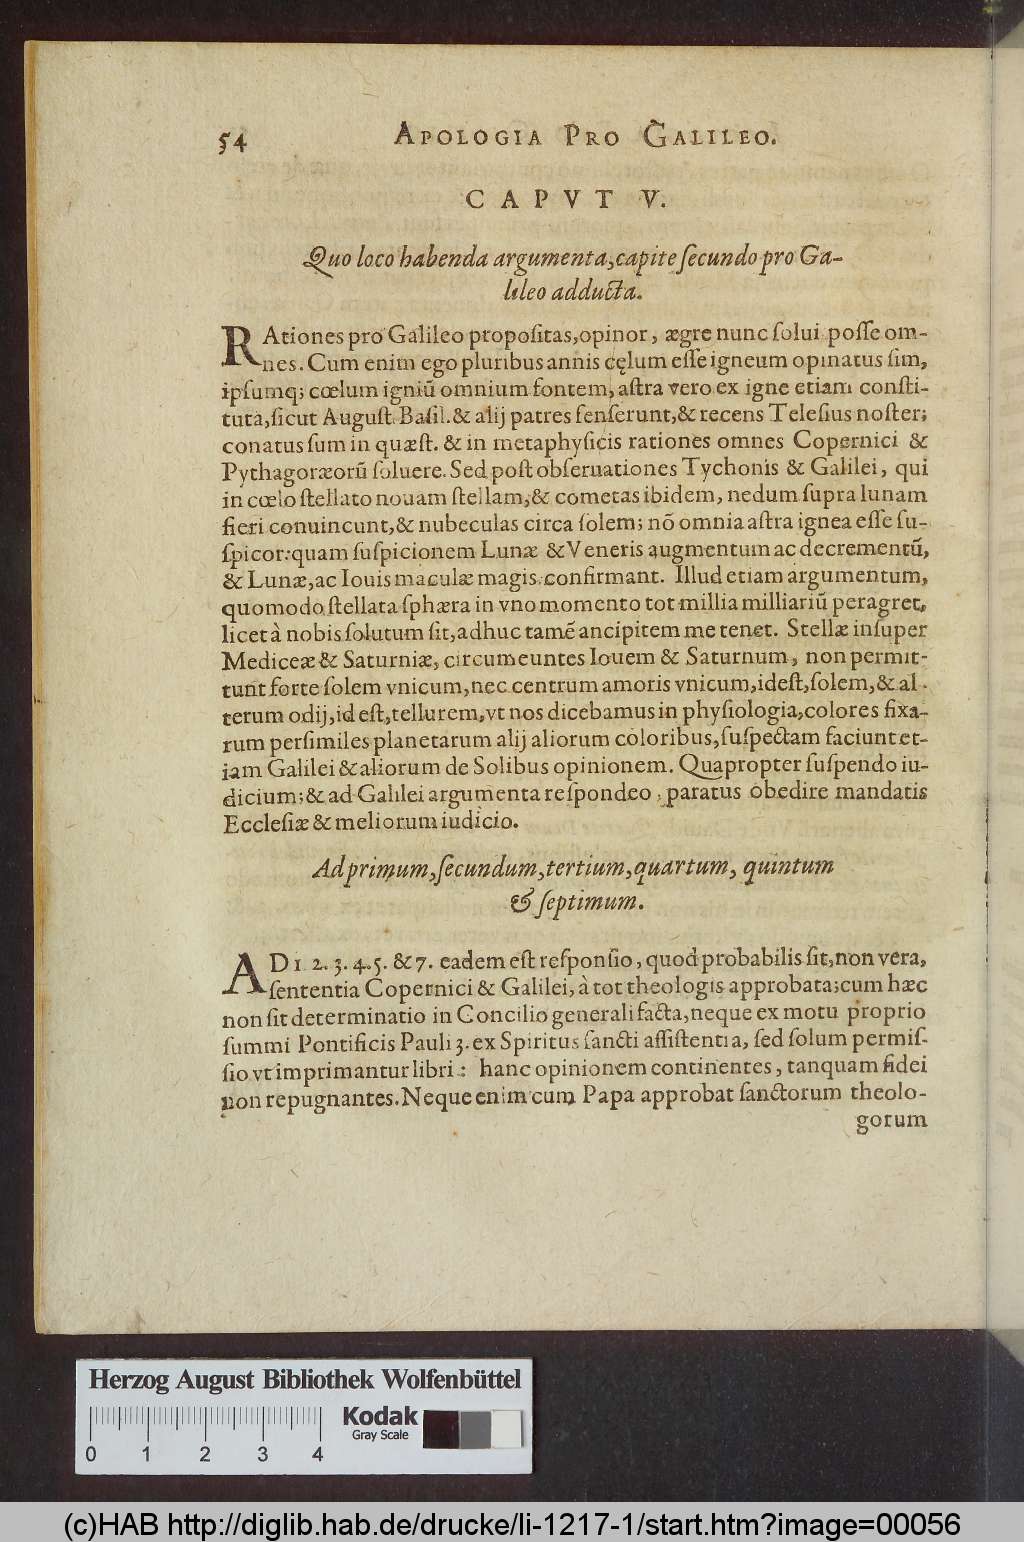 54 APOLOGIA PRO GALILEO.
CAPVT V.
Quo loco habenda argumenta, capite ſecundo pro Ga-
lileo adducta.
RAtiones pro Galileo propoſitas, opinor, ægre nunc ſolui poſſe om-
nes. Cum enim ego pluribus annis cęlum eſſe igneum opinatus ſim,
ipſumq; cœlum igniū omnium fontem, aſtra vero ex igne etiam conſti-
tuta, ſicut Auguſt. Baſil. & alij patres ſenſerunt, & recens Teleſius noſter;
conatus ſum in quæſt. & in metaphyſicis rationes omnes Copernici &
Pythagoræorū ſoluere. Sed poſt obſeruationes Tychonis & Galilei, qui
in cœlo ſtellato nouam ſtellam, & cometas ibidem, nedum ſupra lunam
fieri conuincunt, & nubeculas circa ſolem; nō omnia aſtra ignea eſſe ſu-
ſpicor: quam ſuſpicionem Lunæ & Veneris augmentum ac decrementū,
& Lunæ, ac Iouis maculæ magis confirmant. Illud etiam argumentum,
quomodo ſtellata ſphæra in vno momento tot millia milliariū peragret,
licet à nobis ſolutum ſit, adhuc tamē ancipitem me tenet. Stellæ inſuper
Mediceæ & Saturniæ, circumeuntes Iouem & Saturnum, non permit-
tunt forte ſolem vnicum, nec centrum amoris vnicum, ideſt, ſolem, & al-
terum odij, id eſt, tellurem, vt nos dicebamus in phyſiologia, colores fixa-
rum perſimiles planetarum alij aliorum coloribus, ſuſpectam faciunt et-
iam Galilei & aliorum de Solibus opinionem. Quapropter ſuſpendo iu-
dicium; & ad Galilei argumenta reſpondeo, paratus obedire mandatis
Eccleſiæ & meliorum iudicio.
Ad primum, ſecundum, tertium, quartum, quintum
& ſeptimum.
AD 1. 2. 3. 4. 5. & 7. eadem eſt reſponſio, quod probabilis ſit, non vera,
ſententia Copernici & Galilei, à tot theologis approbata; cum hæc
non ſit determinatio in Concilio generali facta, neque ex motu proprio
ſummi Pontificis Pauli 3. ex Spiritus ſancti aſſiſtentia, ſed ſolum permiſ-
ſio vt imprimantur libri: hanc opinionem continentes, tanquam fidei
non repugnantes. Neque enim cum Papa approbat ſanctorum theolo-
gorum
Herzog August Bibliothek Wolfenbüttel
Kodak
Gray Scale
0 1 2 3 4
(c)HAB http://diglib.hab.de/drucke/li-1217-1/start.htm?image=00056